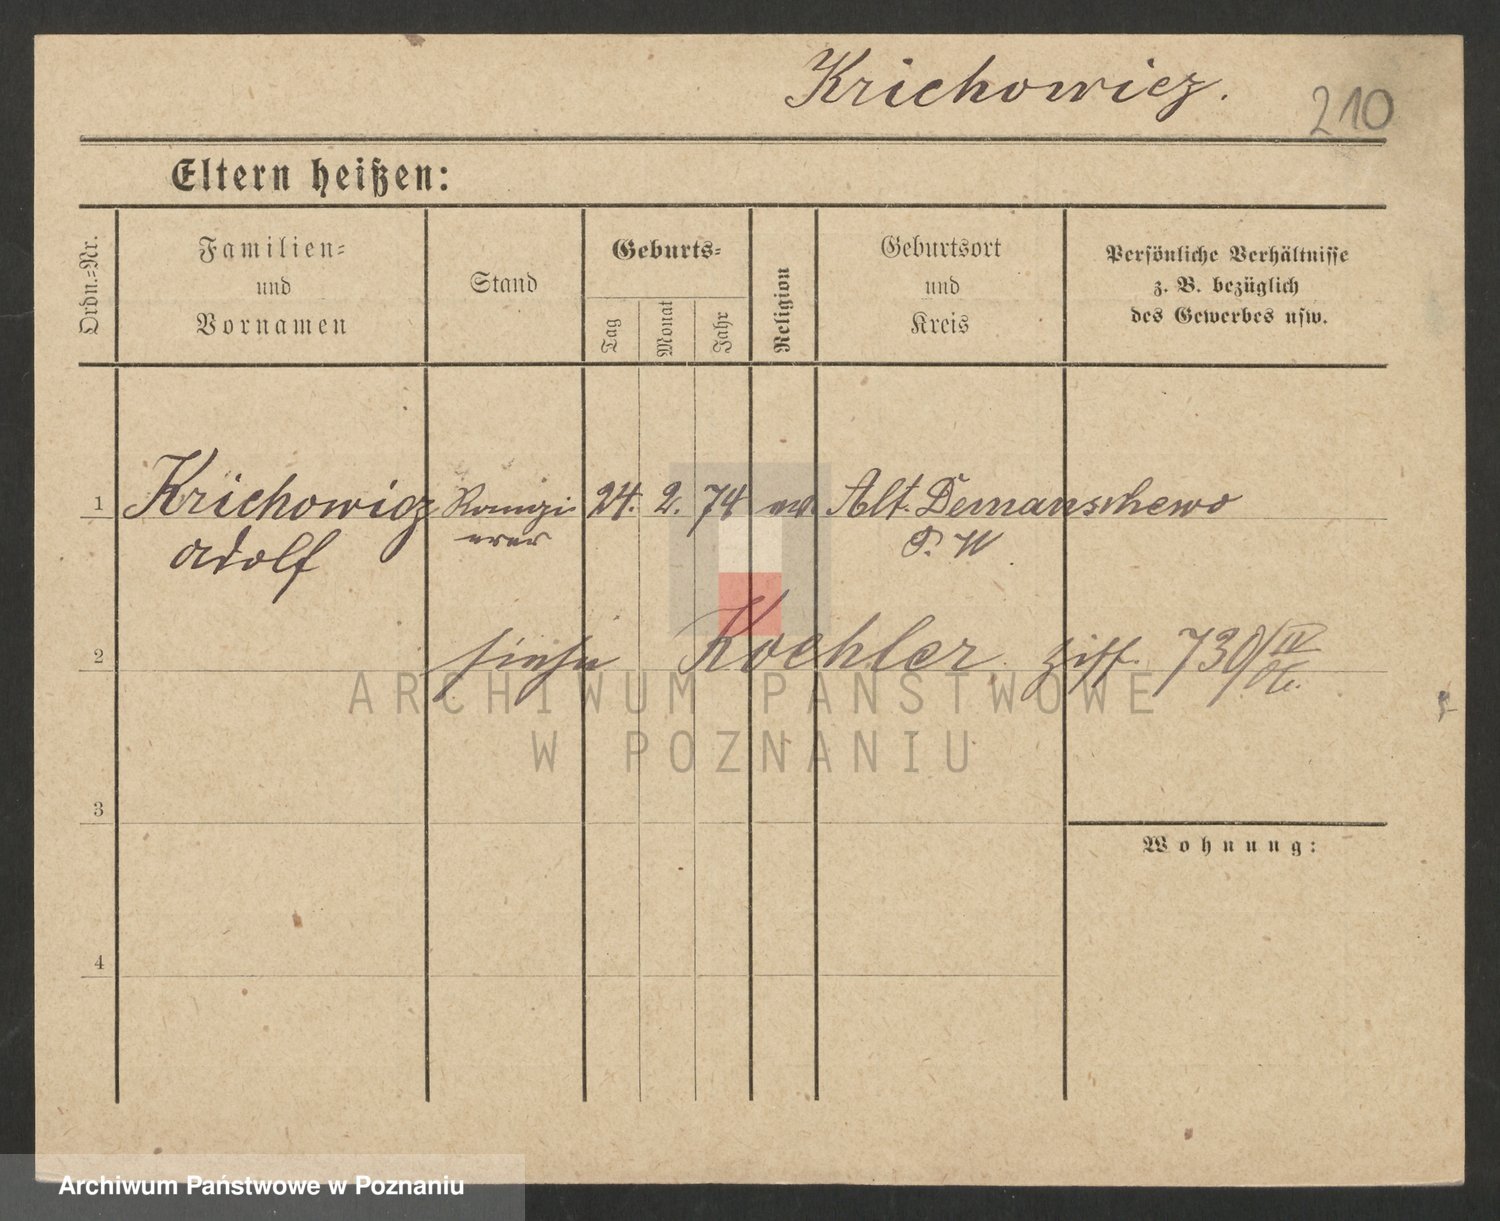 Krichowicz.
210
Eltern heißen:
Ordn.=Nr.
Familien=
und
Vornamen
Stand
Geburts=
Tag
Monat
Jahr
Religion
Geburtsort
und
Kreis
Persönliche Verhältnisse
z. B. bezüglich
des Gewerbes usw.
1 Krichowicz 24. 2. 74 Alt. Demanschewo
Adolf P. W
2 siehe Koehler ziff. 730/IV
3
Wohnung:
4
ARCHIWUM PAŃSTWOWE
W POZNANIU
Archiwum Państwowe w Poznaniu